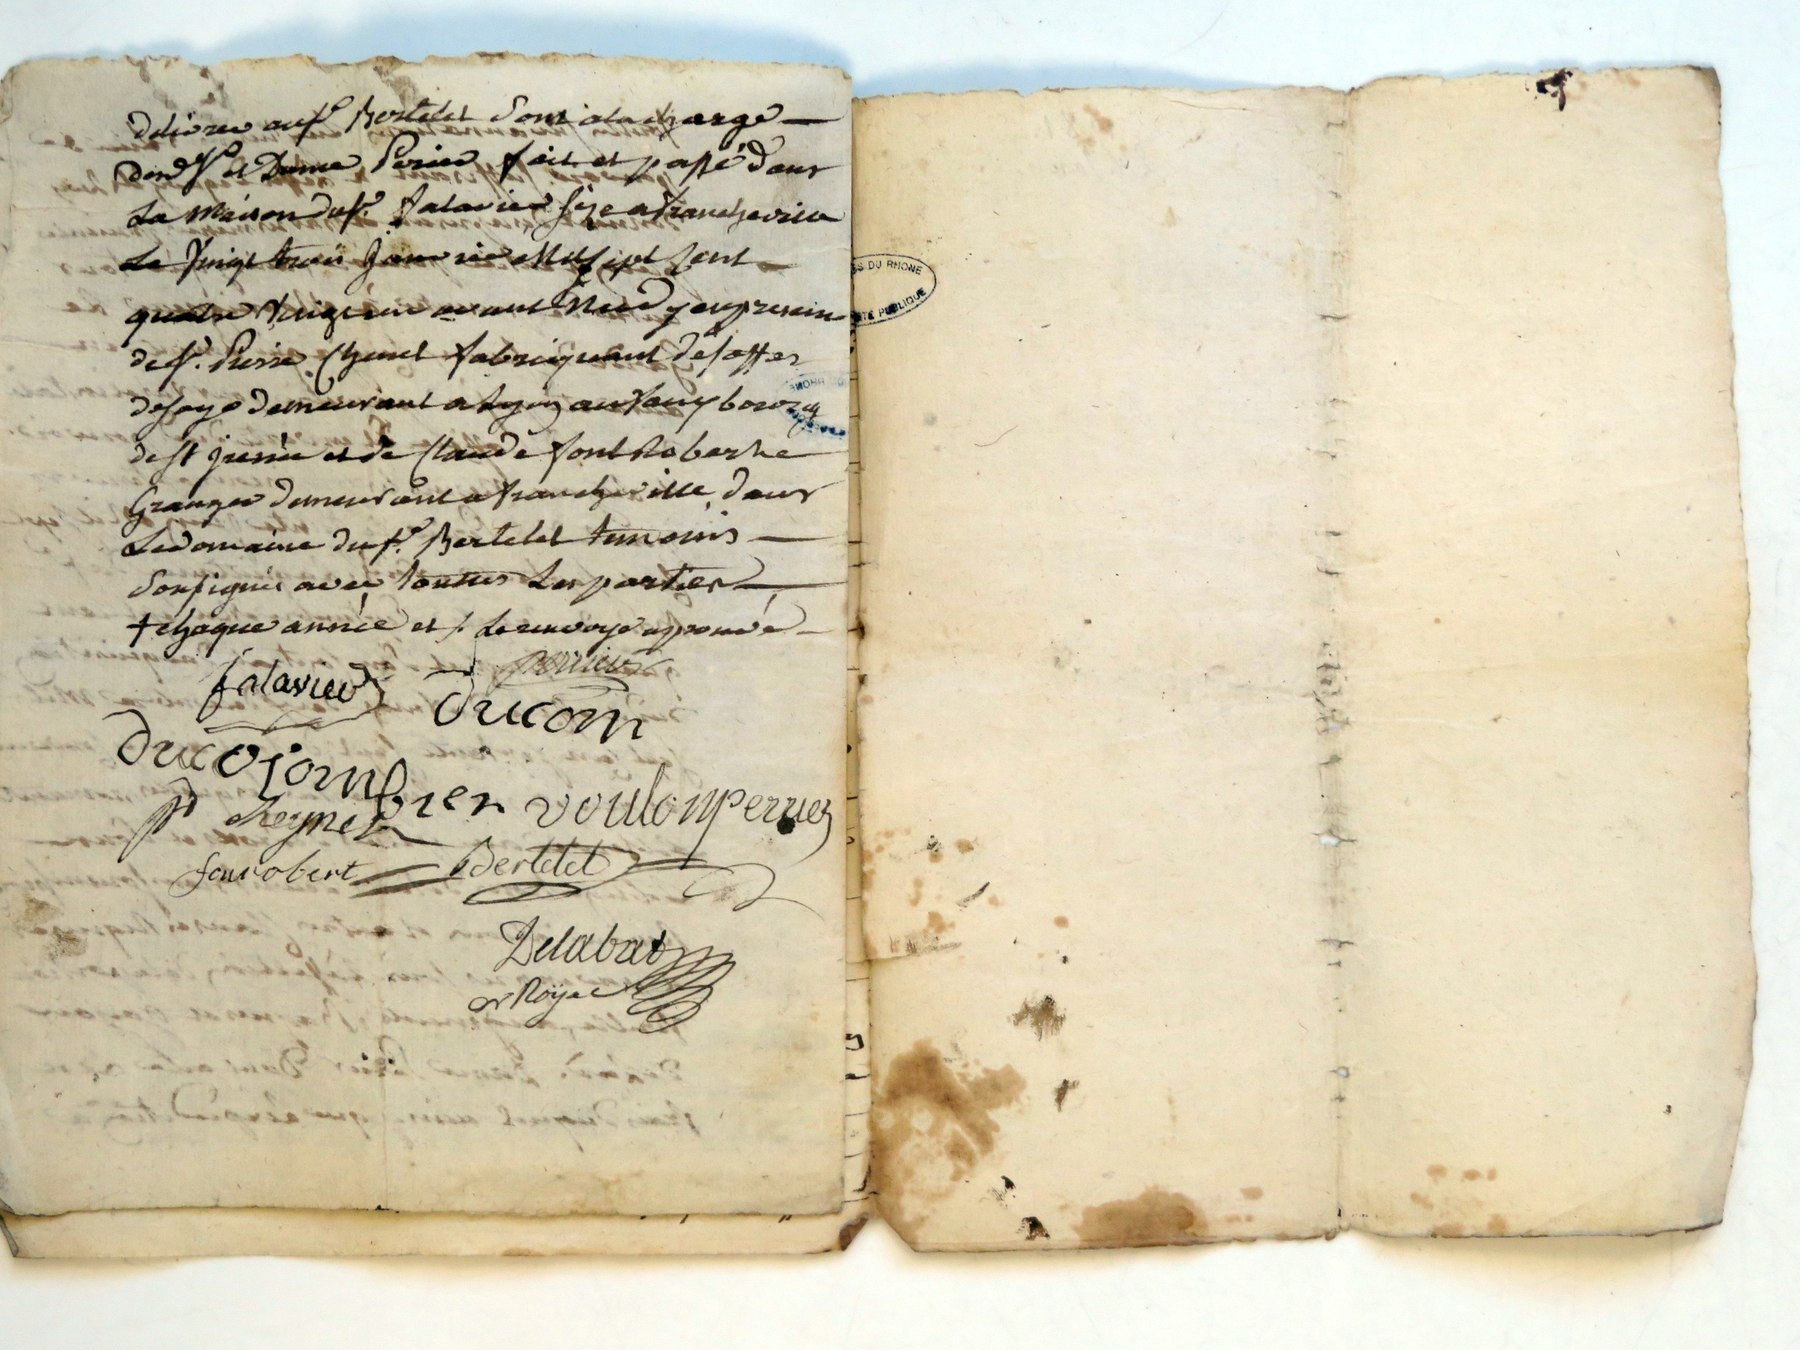 delivrer au sr Bertelet sont a la charge
des sr et Dame Perier fait et passé dans
La maison du sr. falavier size a francheville
Le vingt trois Janvier Mil sept cent
quatre vingt un avant Midy en presence
de sr. Pierre Cheynet fabriquant detoffes
desoye demeurant a Lyon au fauxbourg
de st jrenée et de Claude font Roberthe
Granger demeurant a francheville dans
Le domaine du sr. Bertelet temoins
sousignés avec touttes Les parties
+ chaque année et /. Le renvoye approuvé
falavier perrier
Ducom
Ducolombier voulonperrier
P cheynet
fonrobert Bertelet
Delabat
nre Royal
ES DU RHONE
TÉ PUBLIQUE